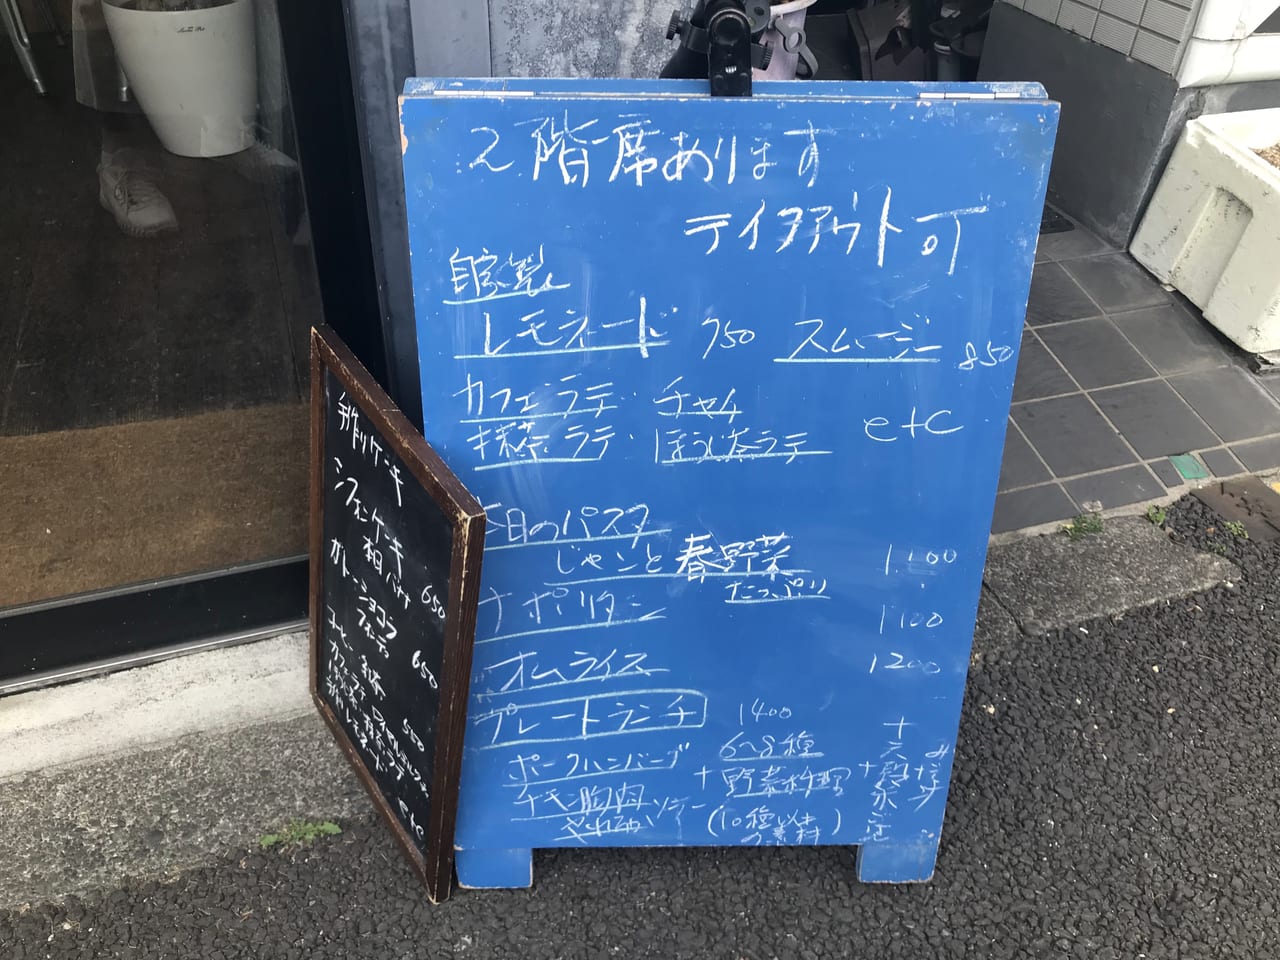 2階席あります
テイクアウト可
自家製
レモネード 750 スムージー 850
カフェラテ・チャイ
抹茶ラテ・ほうじ茶ラテ etc
本日のパスタ
じゃこと春野菜 1100
たっぷり
ナポリタン 1100
オムライス 1200
プレートランチ 1400
ポークハンバーグ 6〜8種
チキン胸肉ソテー +野菜料理
(10種以上)
の素材
手作りケーキ
シフォンケーキ
650
ガトーショコラ
650
コーヒー 紅茶
カフェラテ ロイヤルミルクティ
550
ほうじ茶 抹茶ラテ
自家製レモネード
etc